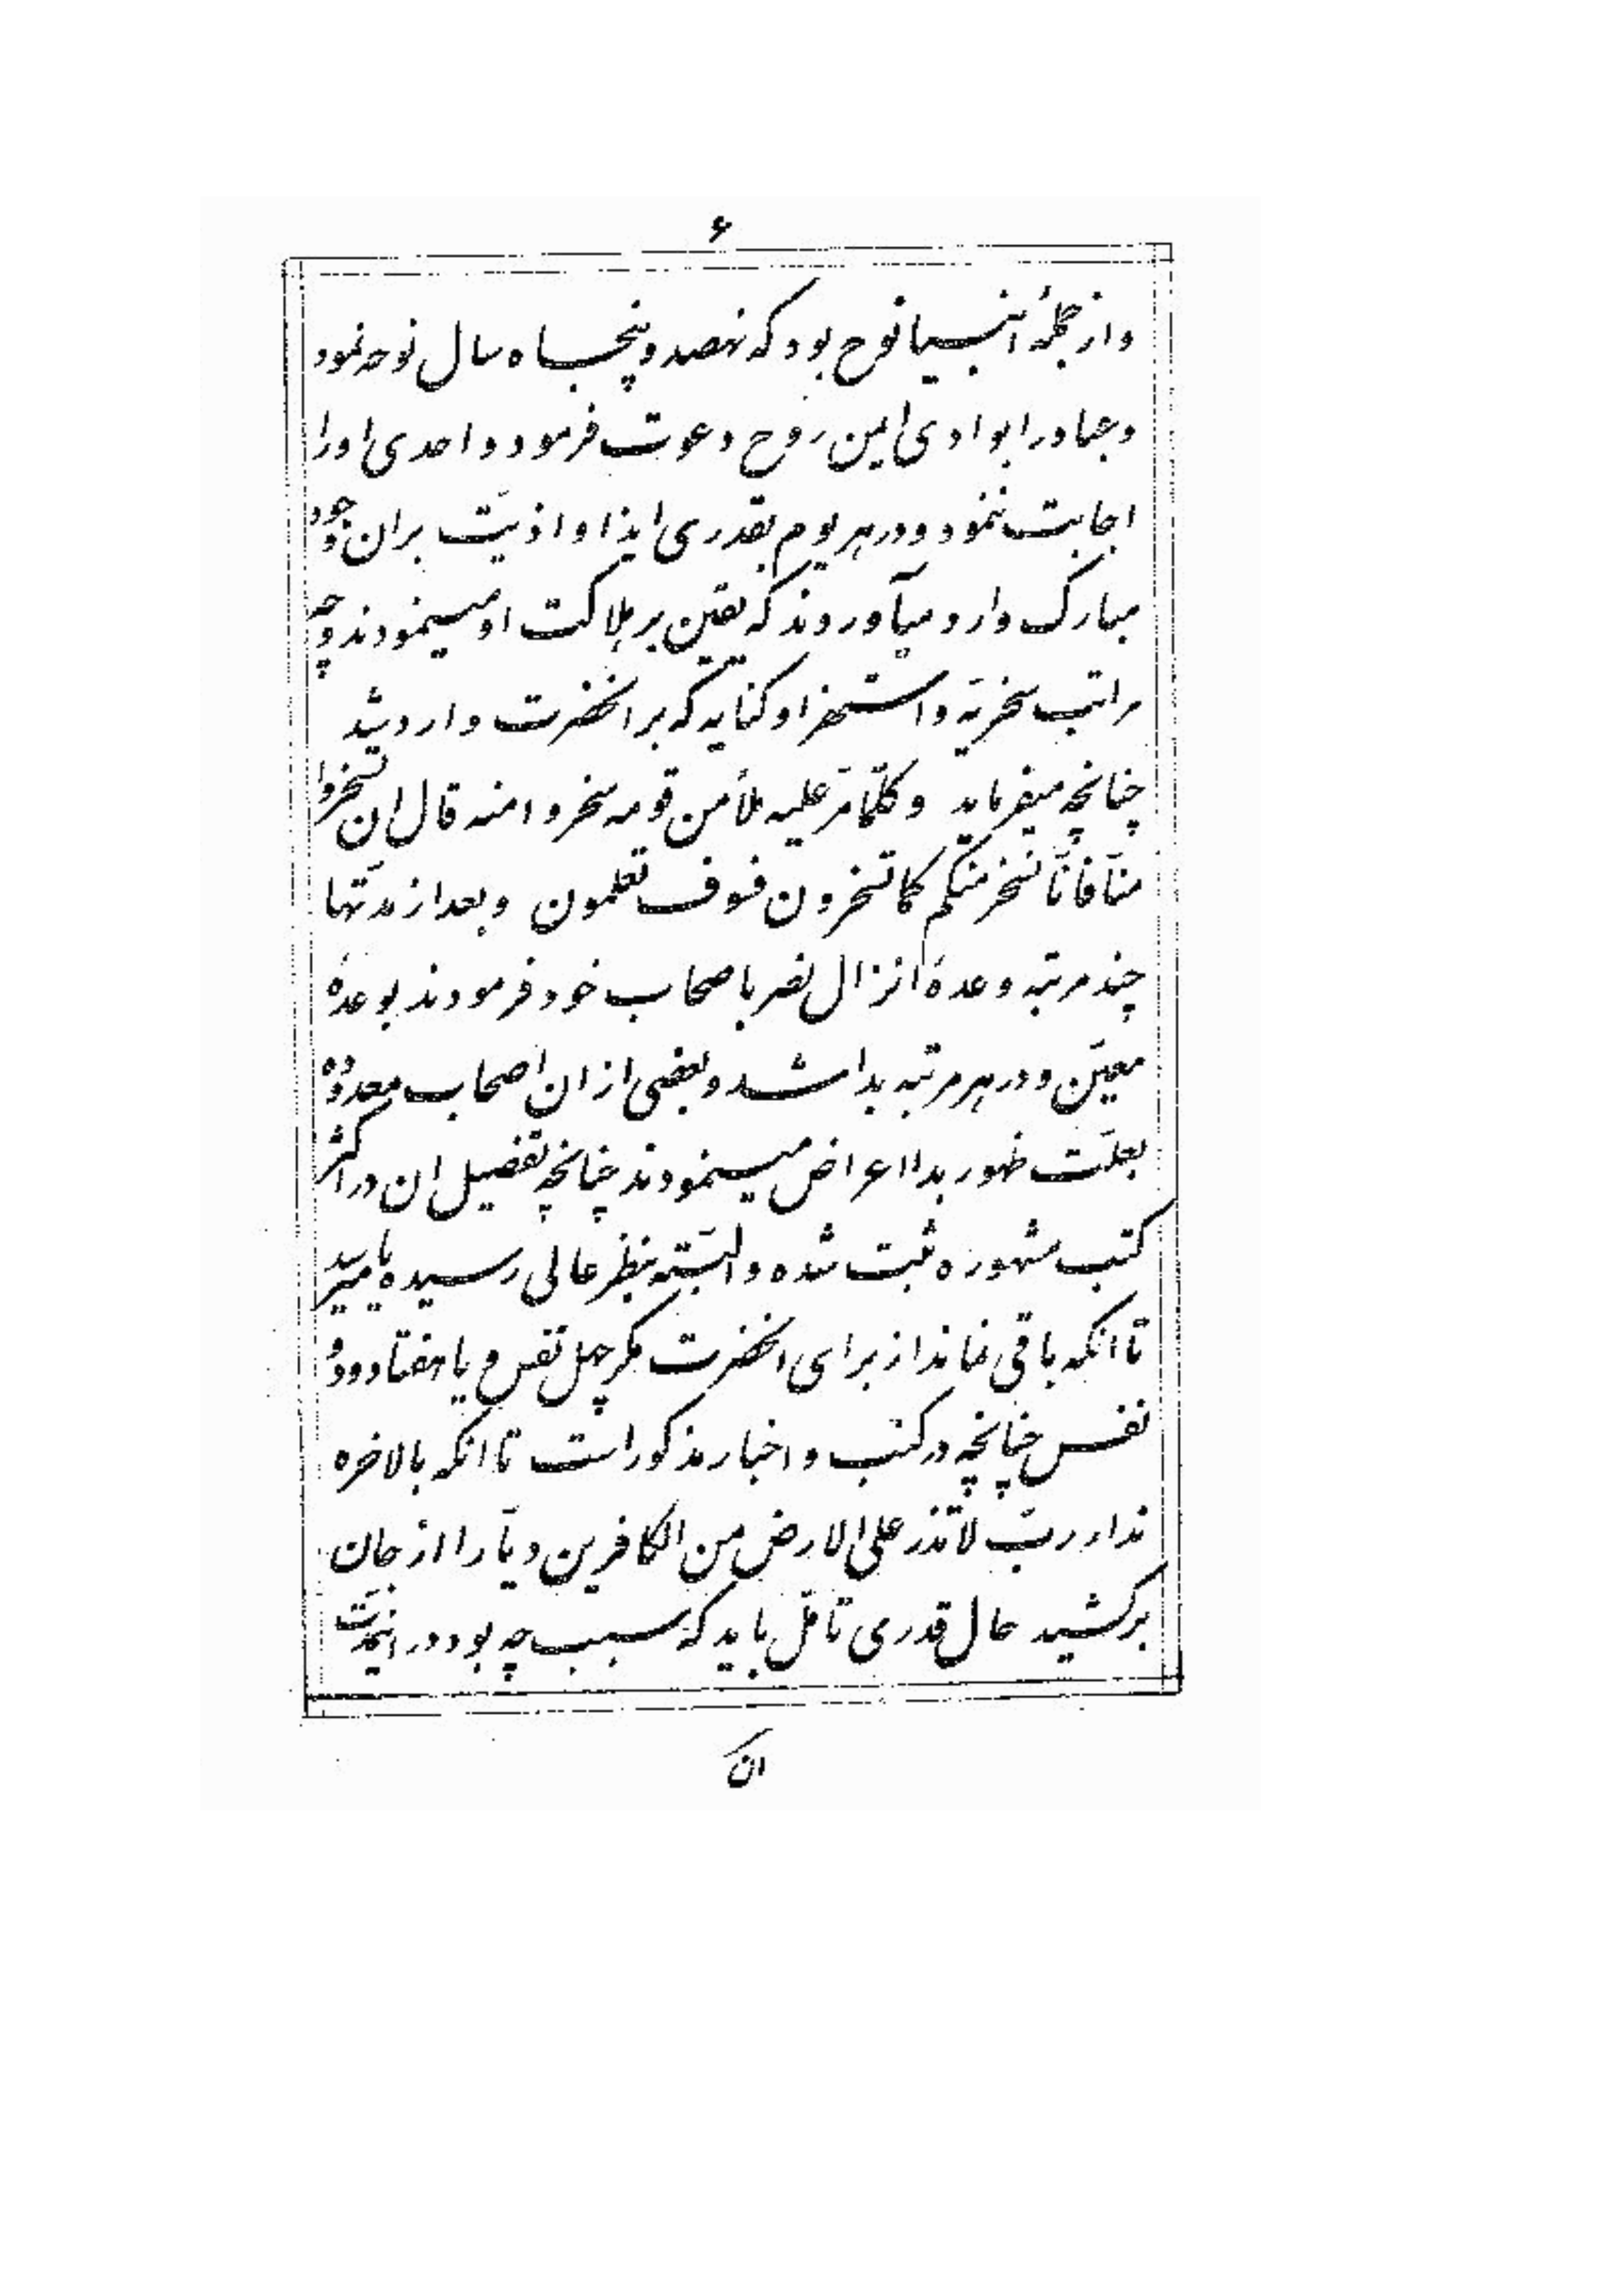 ۶
و از جملهٔ انبیا نوح بود که نهصد و پنجاه سال نوحه نمود
و عباد را بوادی ایمن روح دعوت فرمود و احدی او را
اجابت ننمود و در هر یوم بقدری ایذا و اذیّت بر ان وجود
مبارک وارد میآوردند که یقین بر هلاکت او مینمودند و چه
مراتب سخریّه و استهزا و کنایه که بر انحضرت وارد شد
چنانچه میفرماید و کلّما مرّ علیه ملأ من قومه سخروا منه قال ان تسخروا
منّا فانّا نسخر منکم کما تسخرون فسوف تعلمون و بعد از مدّتها
چند مرتبه وعدهٔ انزال نصر باصحاب خود فرمودند بوعدهٔ
معیّن و در هر مرتبه بدا شد و بعضی از ان اصحاب معدوده
بعلّت ظهور بدا اعراض مینمودند چنانچه تفصیل ان در اکثر
کتب مشهوره ثبت شده و البتّه بنظر عالی رسیده یا میرسد
تا انکه باقی نماند از برای انحضرت مگر چهل نفس و یا هفتاد و دو
نفس چنانچه در کتب و اخبار مذکور است تا انکه بالاخره
ندای ربّ لا تذر علی الارض من الکافرین دیّارا از جان
برکشید حال قدری تامّل باید که سبب چه بود در اینمدّت
ان